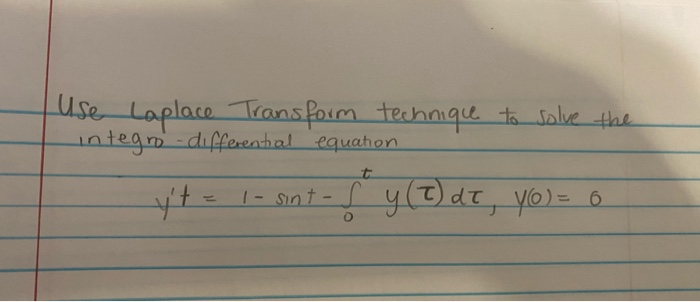 Use Laplace Transform technique to solve the
integro-differential equation
y't = 1 - sint - ∫₀ᵗ y(τ) dτ, y(0) = 0